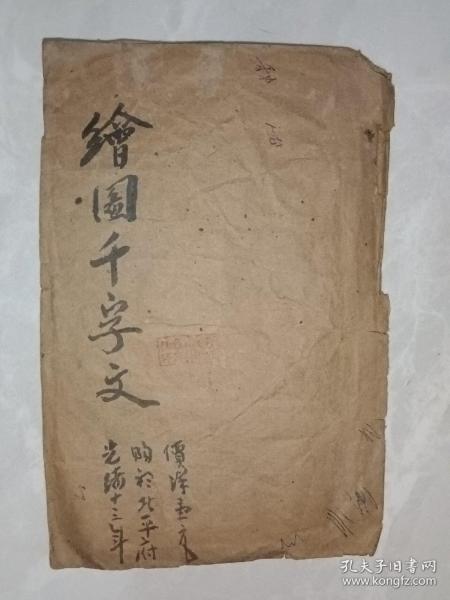 繪圖千字文
價洋壹元
購於北平府
光緒十三年
孔夫子旧书网
www.kongfz.com